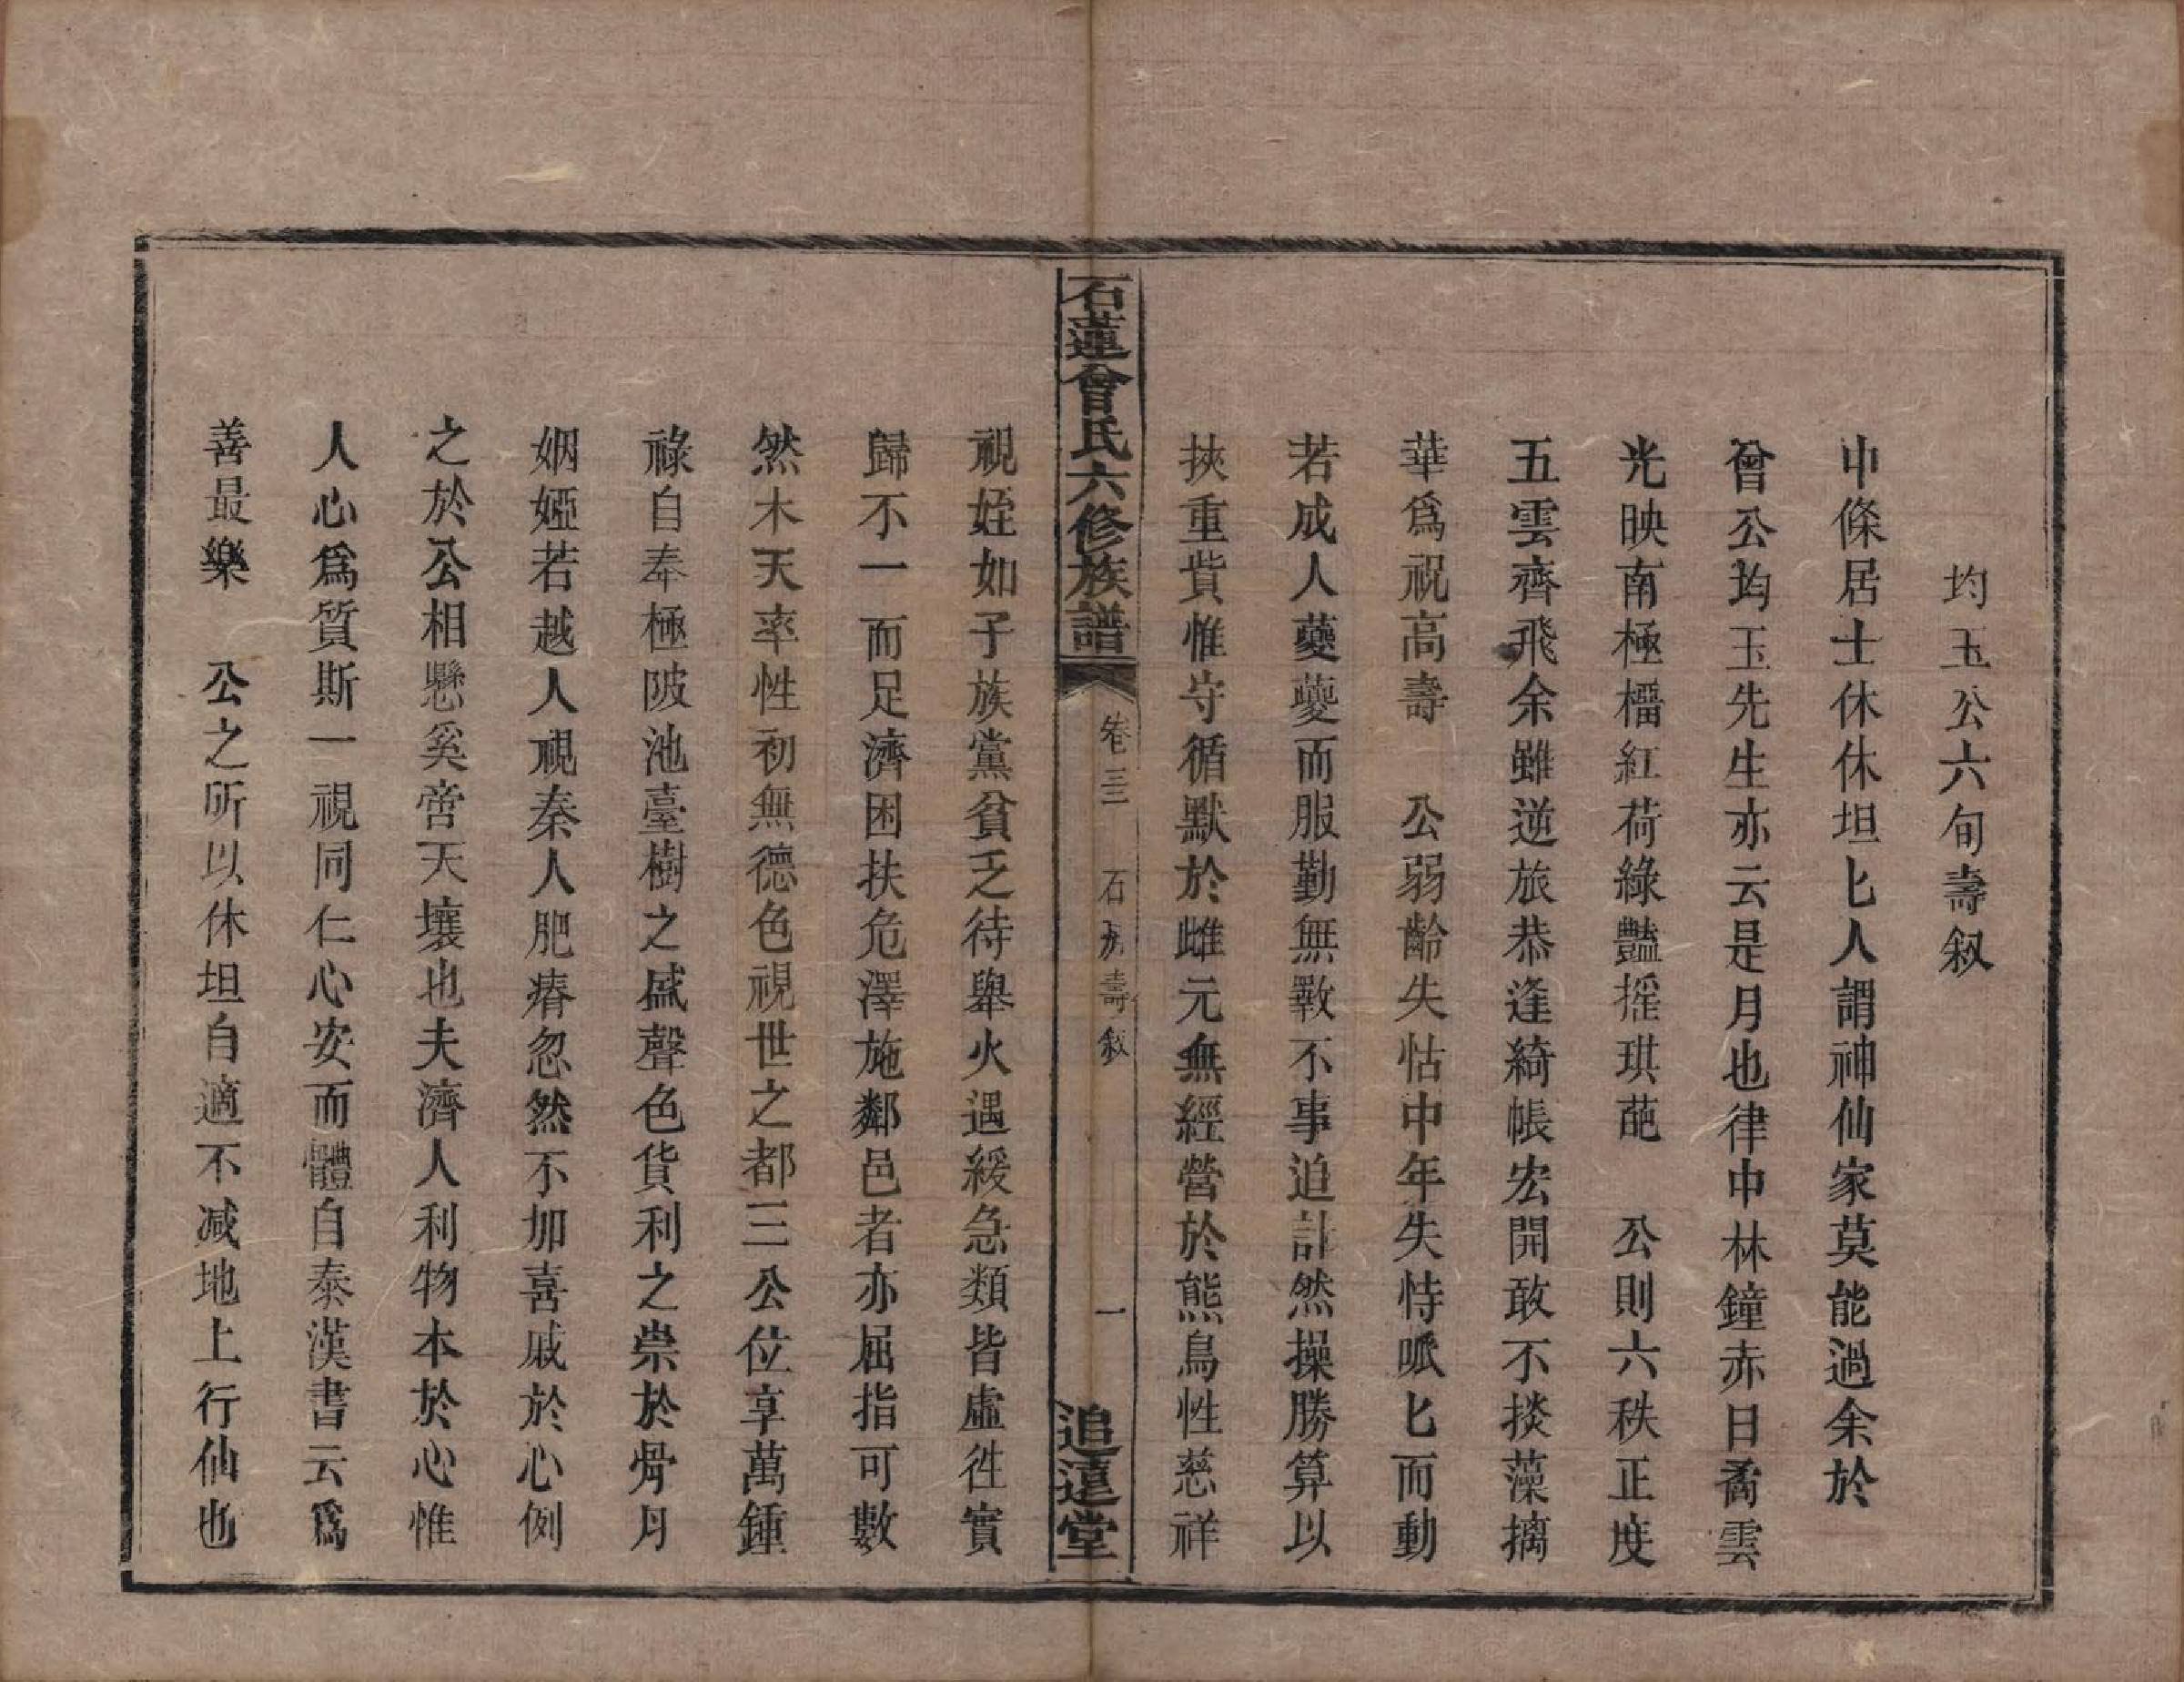 均玉公六旬壽叙
中條居士休休坦匕人謂神仙家莫能過余於
曾公均玉先生亦云是月也律中林鐘赤日矞雲
光映南極榴紅荷綠豔摇琪葩　公則六秩正度
五雲齊飛余雖逆旅恭逢綺帳宏開敢不掞藻摛
華爲祝高壽　公弱齡失怙中年失恃哌匕而動
若成人夔夔而服勤無斁不事迫計然操勝算以
挾重貲惟守循默於雌元無經營於熊鳥性慈祥
石蓮曾氏六修族譜
卷三　石九壽叙　一
追遠堂
視姪如子族黨貧乏待舉火遇緩急類皆虛徃實
歸不一而足濟困扶危澤施鄰邑者亦屈指可數
然木天率性初無德色視世之都三公位享萬鍾
祿自奉極陂池臺樹之盛聲色貨利之崇於骨月
姻婭若越人視秦人肥瘠忽然不加喜戚於心例
之於公相懸奚啻天壤也夫濟人利物本於心惟
人心爲質斯一視同仁心安而體自泰漢書云爲
善最樂　公之所以休坦自適不减地上行仙也